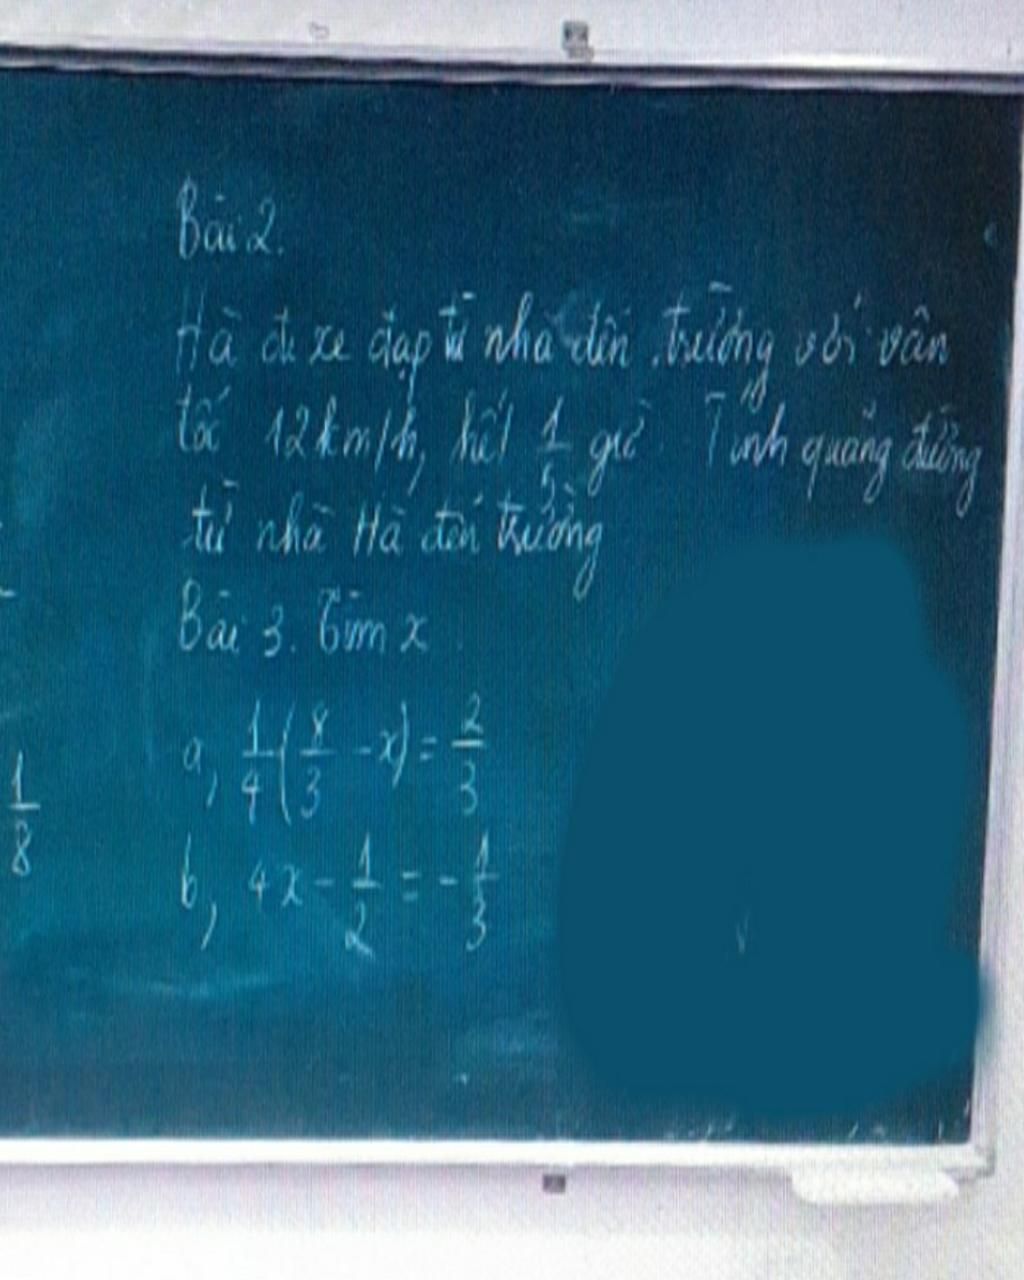 Bài 2.
Hà đi xe đạp từ nhà đến trường với vân
tốc 12km/h, hết 1/5 giờ. Tính quãng đường
từ nhà Hà đến trường
Bài 3. Tìm x
a, 1/4(8/3 - x) = 2/3
1/8
b, 4x - 1/2 = -1/3